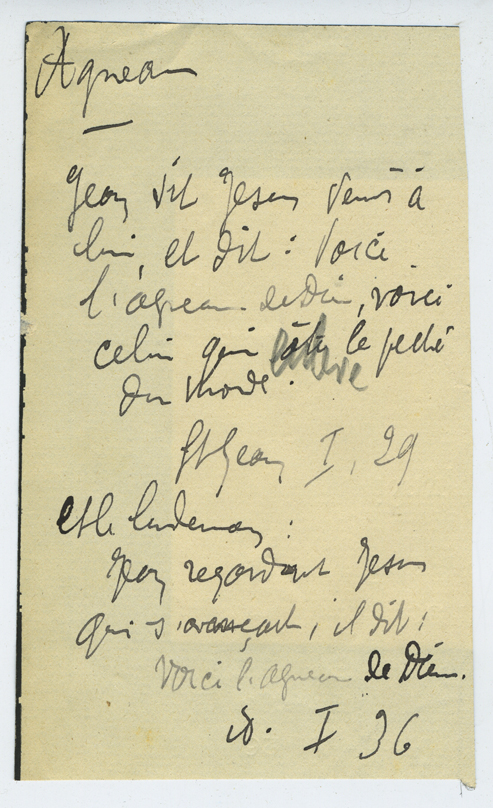 Agneau
Jean vit Jesus venir à
lui, et dit : Voici
l'agneau de Dieu, voici
celui qui ôte le peché
enlève
du monde.
St Jean, I, 29
et le lendemain :
Jean regardant Jesus
qui s'avançait, il dit :
Voici l'agneau de Dieu.
id. I 36